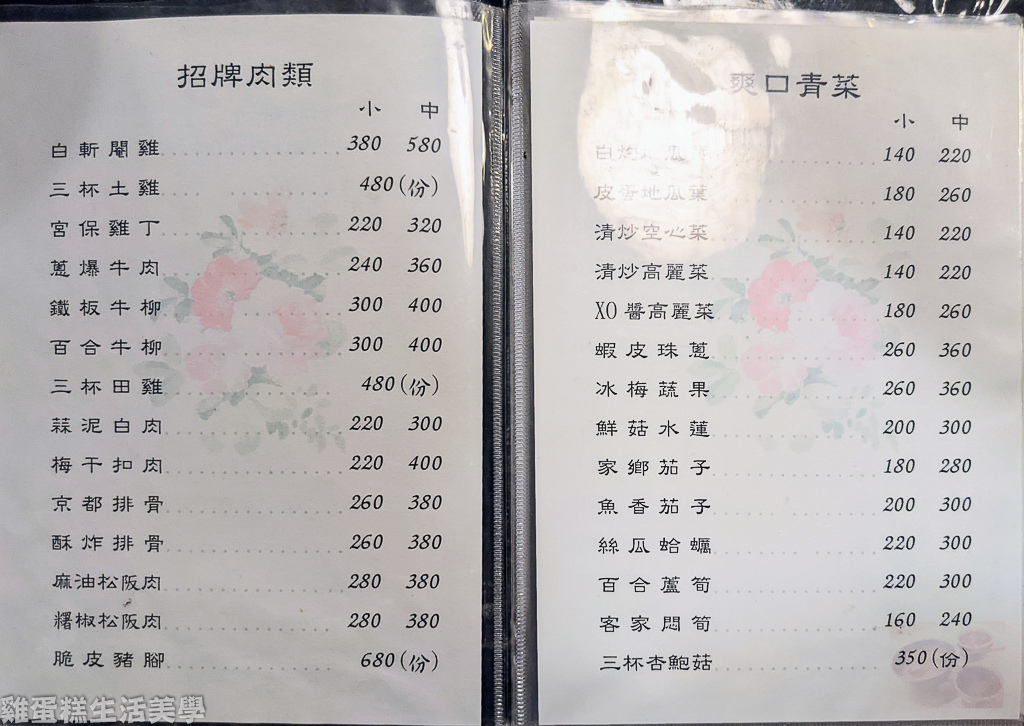 招牌肉類
小 中
白斬閹雞 380 580
三杯土雞 480(份)
宮保雞丁 220 320
蔥爆牛肉 240 360
鐵板牛柳 300 400
百合牛柳 300 400
三杯田雞 480(份)
蒜泥白肉 220 300
梅干扣肉 220 400
京都排骨 260 380
酥炸排骨 260 380
麻油松阪肉 280 380
椒松阪肉 280 380
脆皮豬腳 680(份)
爽口青菜
小 中
白灼地瓜葉 140 220
皮蛋地瓜葉 180 260
清炒空心菜 140 220
清炒高麗菜 140 220
XO醬高麗菜 180 260
蝦皮珠蔥 260 360
冰梅蔬果 260 360
鮮菇水蓮 200 300
家鄉茄子 180 280
魚香茄子 200 300
絲瓜蛤蠣 220 300
百合蘆筍 220 300
客家悶筍 160 240
三杯杏鮑菇 350(份)
雞蛋糕生活美學